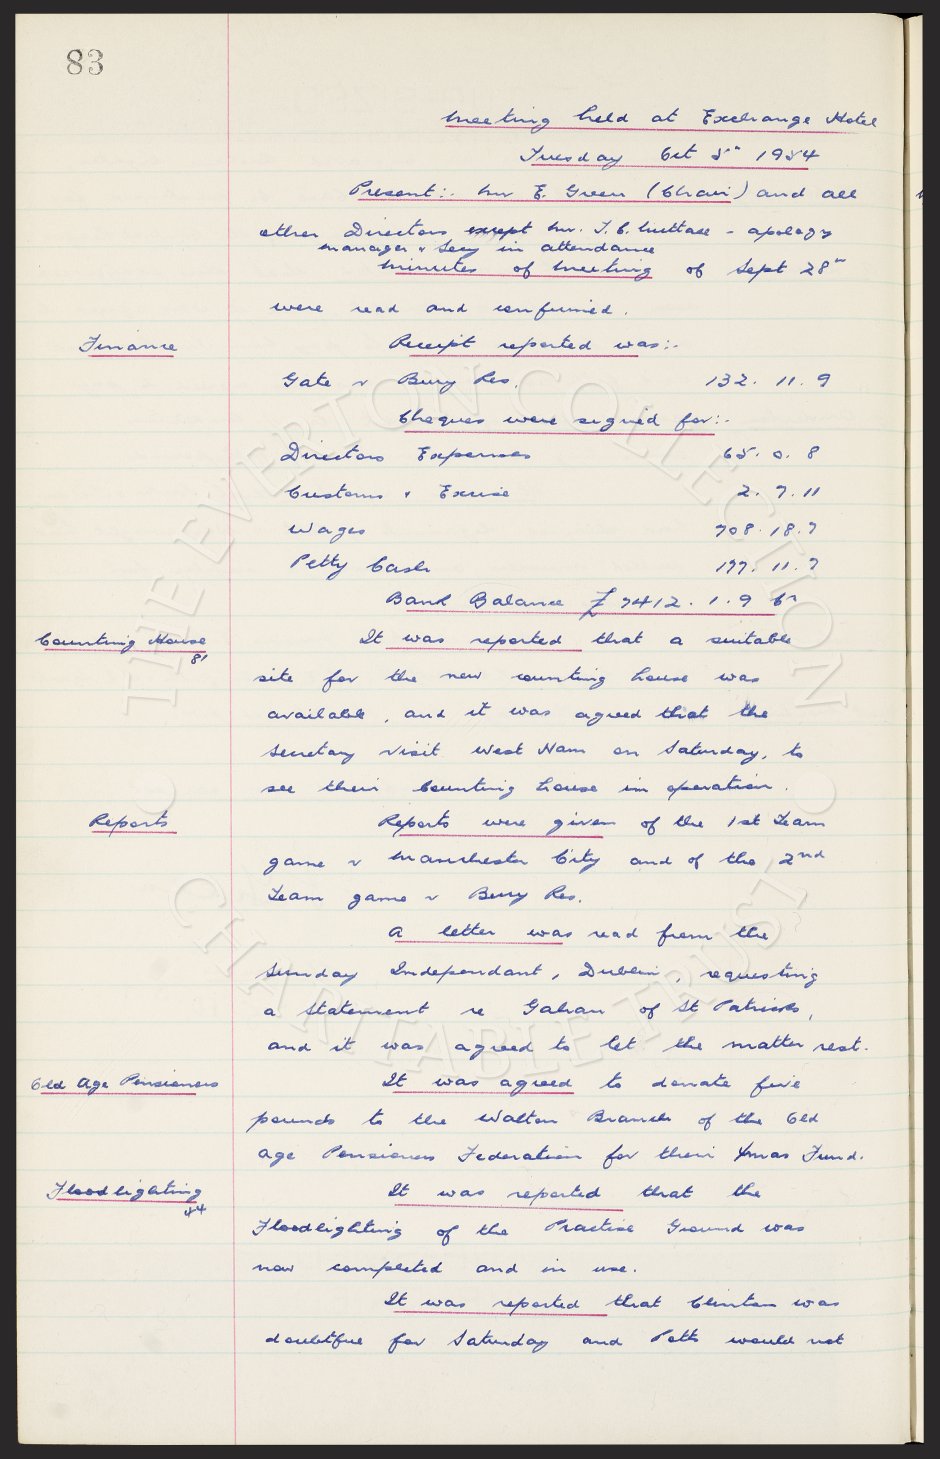 83
Meeting held at Exchange Hotel
Tuesday Oct 5th 1954
Present:- Mr E. Green (Chair) and all
other Directors except Mr. T.C. Nuttall - apology
Manager & Secy in attendance
Minutes of Meeting of Sept 28th
were read and confirmed.
Finance
Receipt reported was:-
Gate v Bury Res. 132. 11. 9
Cheques were signed for:-
Directors Expenses 65. 0. 8
Customs & Excise 2. 7. 11
Wages 708. 18. 7
Petty Cash 177. 11. 7
Bank Balance £7412. 1. 9 Cr
Counting House
81
It was reported that a suitable
site for the new counting house was
available, and it was agreed that the
Secretary visit West Ham on Saturday, to
see their Counting house in operation.
Reports
Reports were given of the 1st Team
game v Manchester City and of the 2nd
Team game v Bury Res.
A letter was read from the
Sunday Independant, Dublin, requesting
a Statement re of St Patricks,
and it was agreed to let the matter rest.
Old Age Pensioners
It was agreed to donate five
pounds to the Walton Branch of the Old
Age Pensioners Federation for their Xmas Fund.
Floodlighting
44
It was reported that the
Floodlighting of the Practise Ground was
now completed and in use.
It was reported that Clinton was
doubtful for Saturday and Potts would not
THE EVERTON COLLECTION
CHARITABLE TRUST